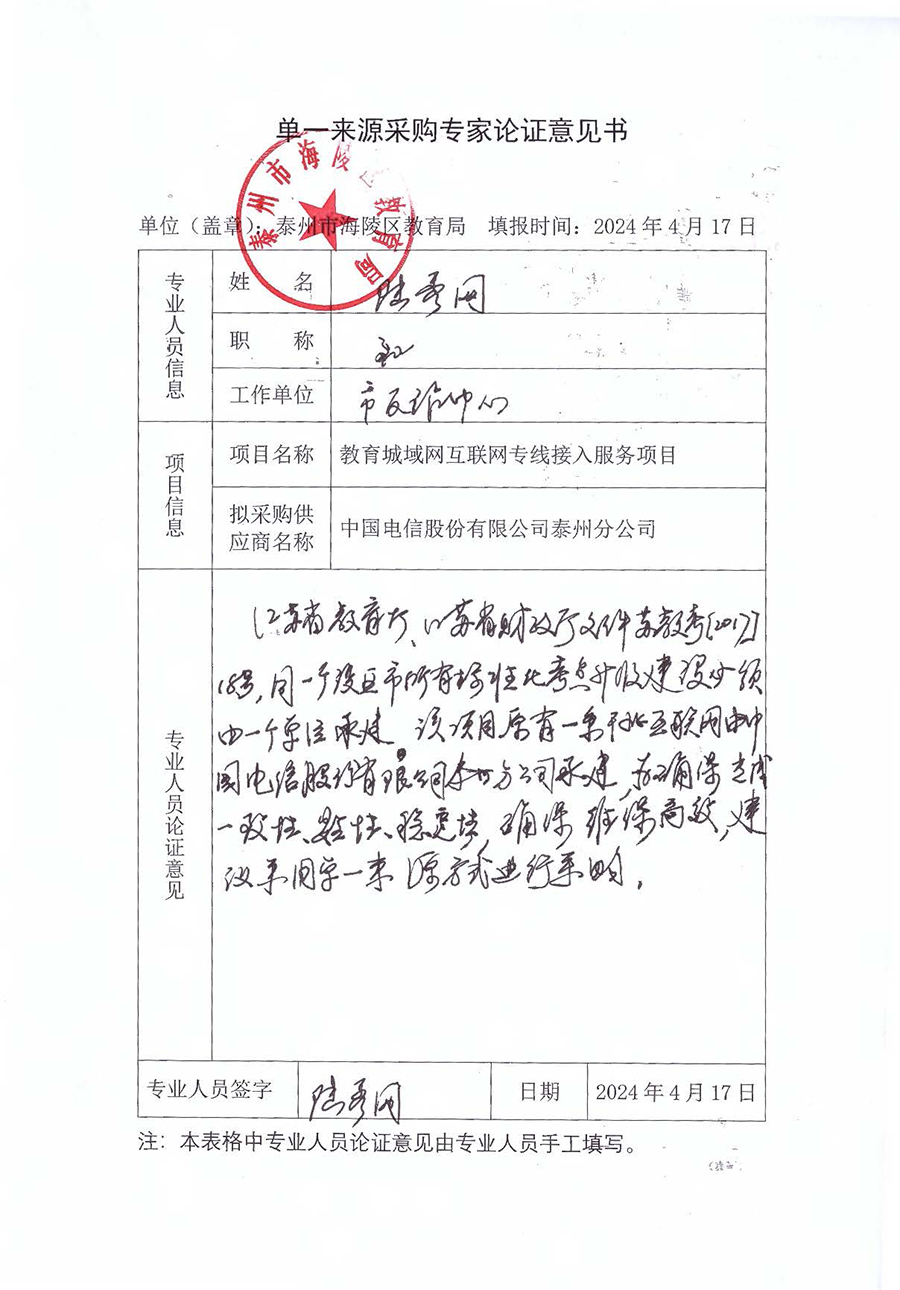 单一来源采购专家论证意见书
泰州市海陵区教育局
单位（盖章）：泰州市海陵区教育局 填报时间：2024年4月17日
专业人员信息
姓 名
职 称
工作单位
项目信息
项目名称 教育城域网互联网专线接入服务项目
拟采购供应商名称 中国电信股份有限公司泰州分公司
专业人员论证意见
江苏省教育厅、江苏省财政厅文件苏教考[2017]
18号，同一个设区市所有标准化考点升级建设必须
由一个单位承建。该项目原有一条 互联网由中
国电信股份有限公司泰州分公司承建，为确保
一致性、 性、稳定性，确保维保高效，建
议采用单一来源方式进行采购。
专业人员签字 日期 2024年4月17日
注：本表格中专业人员论证意见由专业人员手工填写。